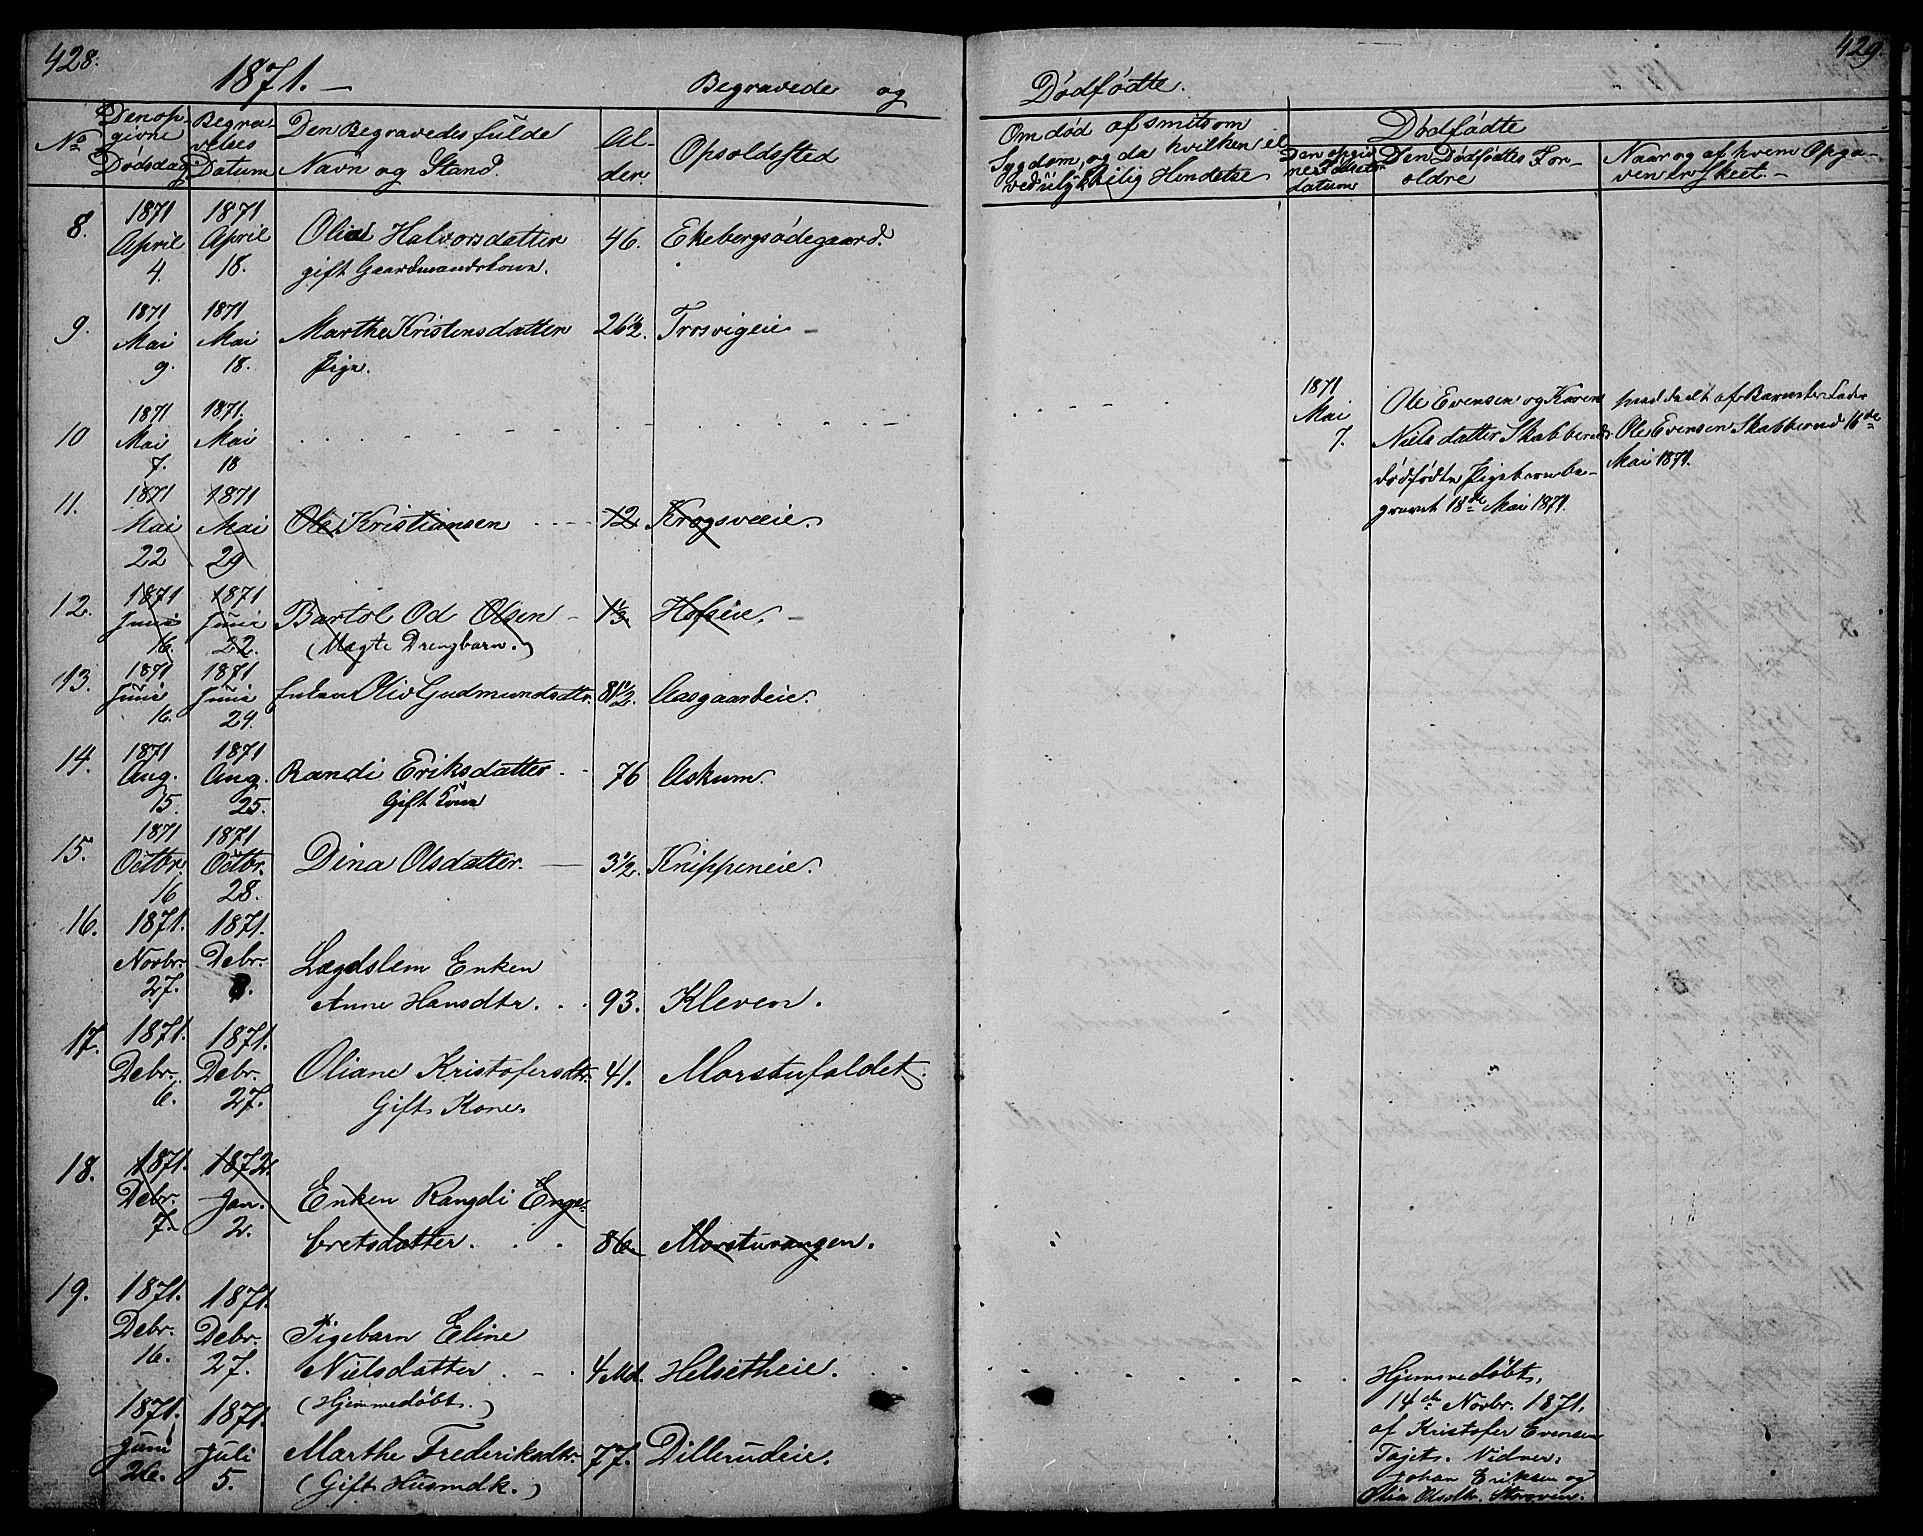 428.
1871. — Begravede og
No
Den op-
givne
Dødsdag.
Begra-
velses
Datum
Den Begravedes fulde
Navn og Stand.
Al-
der.
Opholdssted
8. 1871 April 4. 1871 April 18. Oliae Halvorsdatter 46. Ekebergsødegaard.
gift Gaardmandskone.
9. 1871 Mai 9. 1871 Mai 18. Marthe Kristensdatter 26 1/2. Trosvigeie —
Pige.
10 1871 Mai 7. 1871. Mai 18
11. 1871 Mai 22 1871 Mai 29 Ole Kristiansen 12 Krogsveeie.
12. 1871 Juni 16. 1871 Juni 22. Bartol Od Olsen 1 1/3. Hofseie.
(Uægte Drengbarn.)
13. 1871 Juni 16. 1871 Juni 24. Enken Oliv Gudmundsdtr. 81 1/2. Aasgaardeie.
14. 1871 Aug. 15. 1871 Aug. 25. Randi Eriksdatter 76 Askum.
Gift Kone
15. 1871 Octbr. 16 1871 Octbr. 28. Dina Olsdatter. — 3 1/2. Knippeneie.
16. 1871. Novbr. 27. 1871. Debr. 8. Lægdslem Enken
Anne Hansdtr. 93. Kleven.
17. 1871. Debr. 6. 1871. Debr. 27. Oliane Kristofersdtr. 41. Morstufaldet.
Gift Kone.
18. 1871. Debr. 7. 1872. Jan. 2. Enken Rangdi Enge-
bretsdatter. 86. Morstuvangen.
19. 1871. Debr. 16. 1871. Debr. 27. Pigebarn Eline
Nielsdatter 4 Md. Helsetheie.
(Hjemmedøbt.)
1871. Juni 26. 1871. Juli 5. Marthe Frederiksdtr. 77. Dillerudeie.
(Gift Husmdk.)
429.
Dødfødte.
Om død af smitsom
Sygdom, og da hvilken el
ved ulykkelig Hendelse
Dødfødte
Den opgiv
ne Fødsels
datum
Den Dødfødtes For-
ældre
Naar og af hvem Opga-
ven er skeet —
1871 Mai 7.
Ole Evensen og Karen
Nielsdatter Skabberuds
dødfødte Pigebarn be-
gravet 18de Mai 1871.
meddeelt af Barnets Fader
Ole Evensen Skabberud 16de
Mai 1871.
Hjemmedøbt,
14de Novbr. 1871.
af Kristofer Evensen
Vidner:
Johan Eriksen og
Olia Olsdtr.